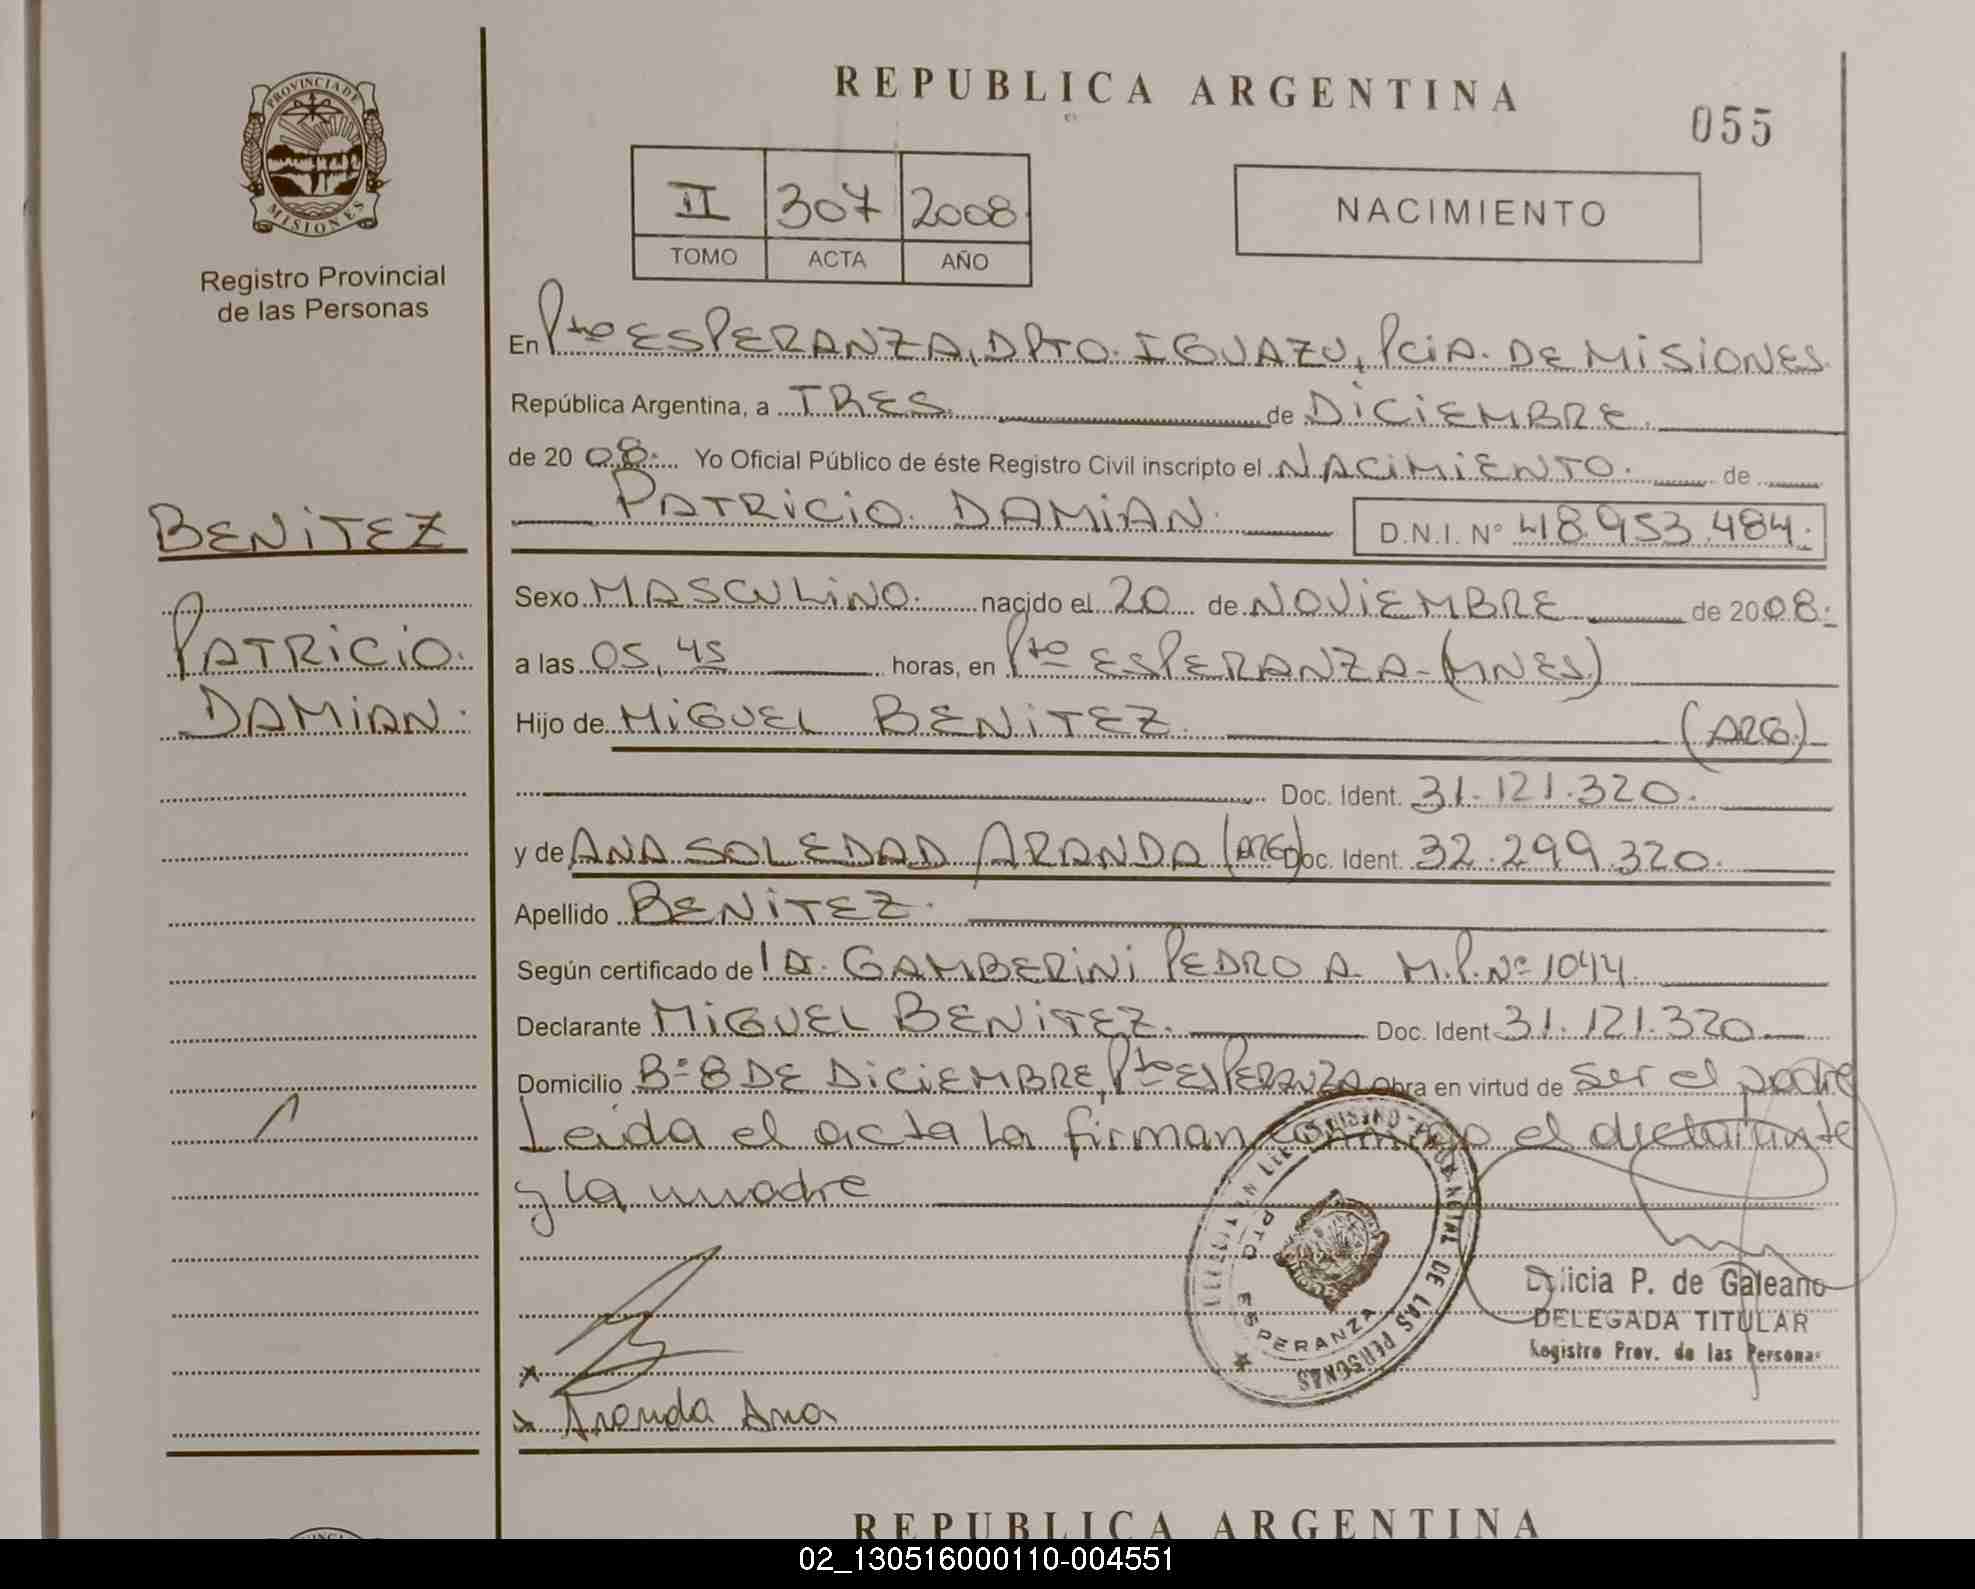 REPUBLICA ARGENTINA
055
PROVINCIA DE
MISIONES
Registro Provincial
de las Personas
II 307 2008
TOMO ACTA AÑO
NACIMIENTO
En Pto ESPERANZA, DPTO. IGUAZU, PciA. DE MISIONES
República Argentina, a TRES de DICIEMBRE.
de 2008. Yo Oficial Público de éste Registro Civil inscripto el NACIMIENTO. de
PATRICIO DAMIAN. D.N.I. N° 48.953.484.
BENITEZ
PATRICIO.
DAMIAN.
Sexo MASCULINO. nacido el 20 de NOVIEMBRE de 2008.
a las 05,45 horas, en Pto ESPERANZA-(MNES)
Hijo de MIGUEL BENITEZ. (ARG.)
Doc. Ident. 31.121.320.
y de ANA SOLEDAD ARANDA (ARG) Doc. Ident. 32.299.320.
Apellido BENITEZ.
Según certificado de GAMBERINI PEDRO A. M.P. N° 1044.
Declarante MIGUEL BENITEZ. Doc. Ident 31.121.320.
Domicilio B° 8 DE DICIEMBRE, Pto ESPERANZA Obra en virtud de ser el padre
Leida el acta la firman conmigo el declarante
y la madre
REGISTRO PROVINCIAL DE LAS PERSONAS
PTO ESPERANZA
P. de Galeano
DELEGADA TITULAR
Registro Prov. de las Personas
x
x Aranda Ana
REPUBLICA ARGENTINA
02_130516000110-004551